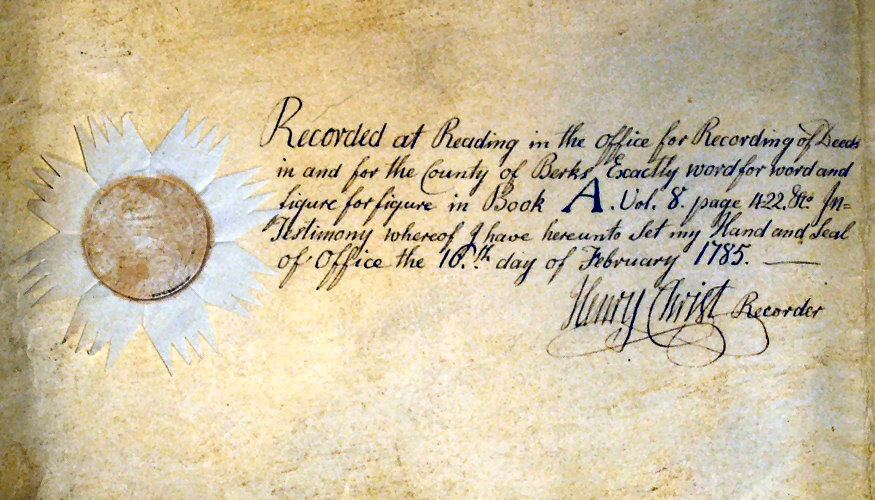 Recorded at Reading in the office for Recording of Deeds
in and for the County of Berks, Exactly word for word and
figure for figure in Book A. Vol. 8. page 422. &c. In=
Testimony whereof I have hereunto Set my Hand and Seal
of Office the 10.th day of February 1785.
Henry Christ Recorder